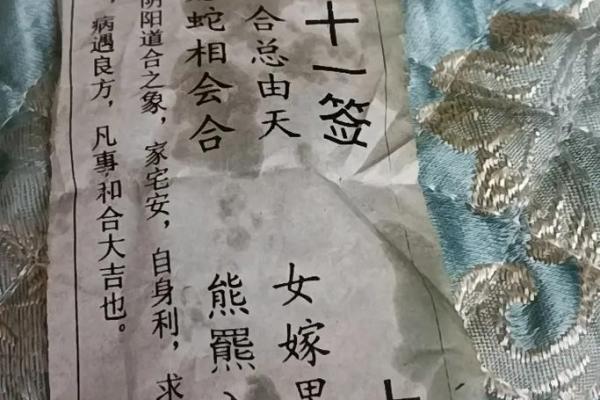 十一签
合总由天 女嫁男
蛇相会合 熊羆
阴阳道合之象，家宅安，自身利，求
，病遇良方，凡事和合大吉也。